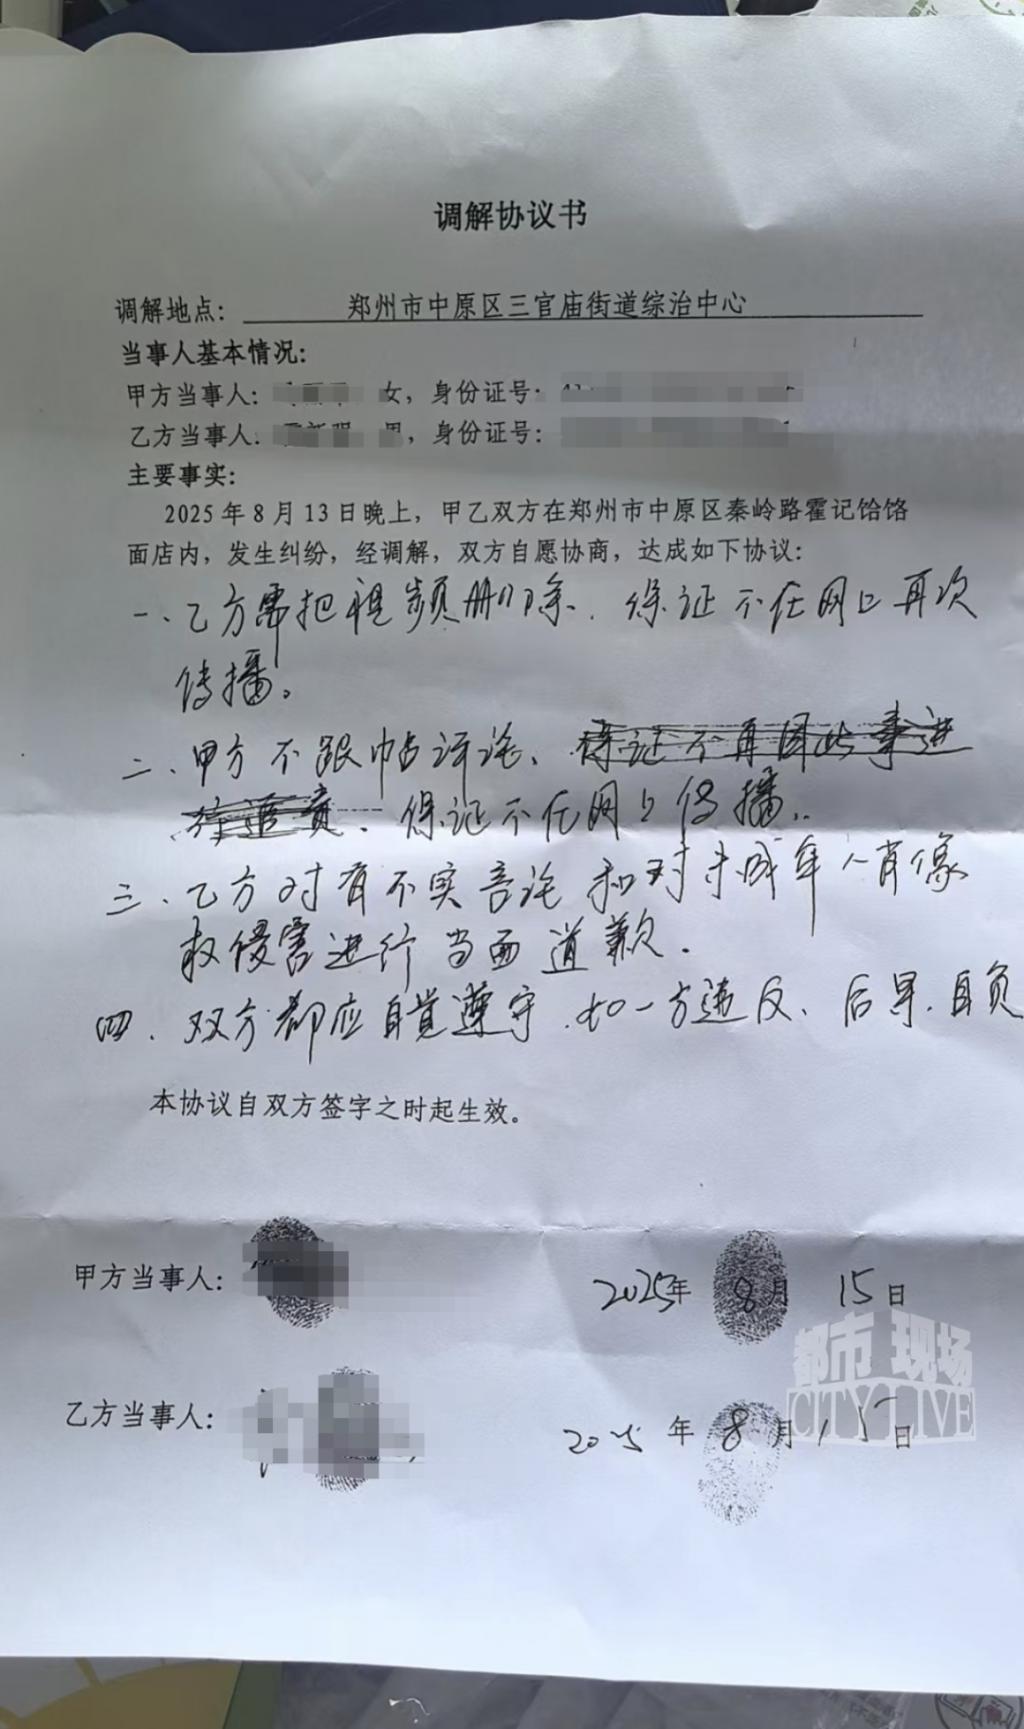 调解协议书
调解地点: 郑州市中原区三官庙街道综治中心
当事人基本情况:
甲方当事人: 女，身份证号:
乙方当事人: 男，身份证号:
主要事实:
2025年8月13日晚上，甲乙双方在郑州市中原区秦岭路霍记饸饹
面店内，发生纠纷，经调解，双方自愿协商，达成如下协议:
一、乙方需把视频删除、保证不在网上再次
传播。
二、甲方不跟帖评论、保证不再因此事进
行追责、保证不在网上传播。
三、乙方对有不实言论和对未成年人肖像
权侵害进行当面道歉.
四、双方都应自觉遵守.如一方违反、后果自负
本协议自双方签字之时起生效。
甲方当事人: 2025年8月15日
乙方当事人: 2025年8月15日
都市现场
CITYLIVE